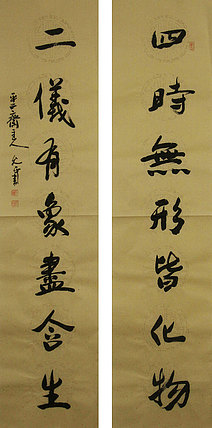 四時無形皆化物
二儀有象盡含生